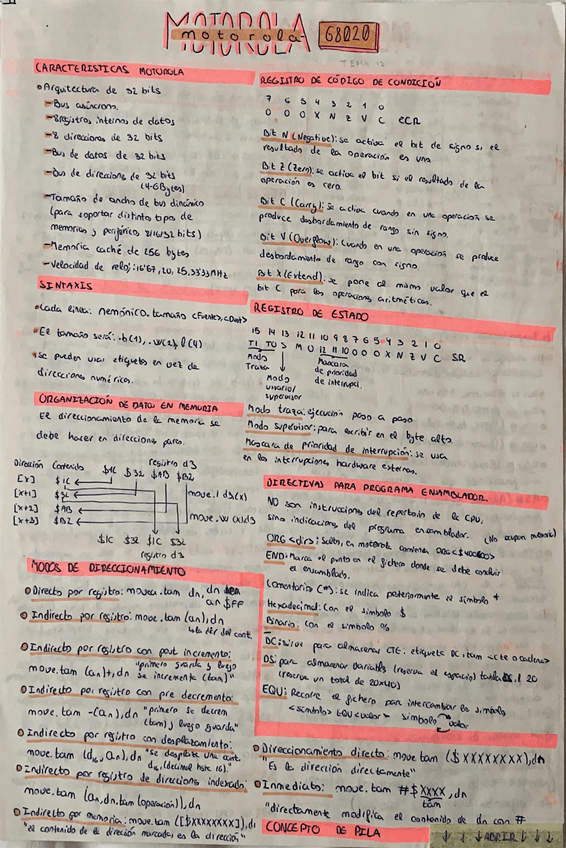 MOTOROLA
motorola
68020
TEMA 12
CARACTERISTICAS MOTOROLA
Arquitectura de 32 bits
- Bus asíncrono.
- Registros internos de datos
- 8 direcciones de 32 bits
- Bus de datos de 32 bits
- Bus de direciones de 32 bits
(4-GBytes)
- Tamaño de ancho de bus dinámico
(para soportar distintos tipos de
memorias y periféricos
- Memoria caché de 256 bytes
- Velocidad de reloj: 16'67, 20, 25, 33'33MHz
SINTAXIS
Cada linea: nemónico. tamaño <Fuente>, <Dest>
El tamaño será: .b(1), .w(2), l(4)
se pueden usar etiquetas en vez de
direcciones numéricas.
ORGANIZACIÓN DE DATOS EN MEMORIA
El direccionamiento de la memoria se
debe hacer en direcciones pares.
registro d3
Dirección Contenido $1C $32 $AB $B2
[x] $1C
[x+1] $32
[x+2] $AB
[x+3] $B2
move.l d3,(x)
move.w (x),d3
$1C $32 $1C $32
registro d3
MODOS DE DIRECCIONAMIENTO
Directo por registro: movea.tam dn, dn
an $FF
Indirecto por registro: move.tam (an), dn
Indirecto por registro con post incremento:
move.tam (an)+, dn "primero guarda y luego
se incrementa (tam)"
Indirecto por registro con pre decremento:
move.tam -(an), dn "primero se decrem
(tam) y luego guarda"
Indirecto por registro con desplazamiento:
move.tam (d16, an), dn "se desplaza una cant.
d16 (decimal base 16)."
Indirecto por registro de direciones indexado:
move.tam (an, dn.tam (operación)), dn
Indirecto por memoria: move.tam ([$XXXXXXXX]), d
"el contenido de la direción marcada, es la dirección"
REGISTRO DE CÓDIGO DE CONDICIÓN
7 6 5 4 3 2 1 0
0 0 0 X N Z V C CCR
Bit N (Negative): se activa el bit de signo si el
resultado de la operación es una
Bit Z (Zero): se activa el bit si el resultado de la
operación es cero
Bit C (Carry): se activa cuando en una operación se
produce desbordamiento de rango sin signo.
Bit V (Overflow): Cuando en una operación se produce
desbordamiento de rango con signo
Bit X (Extend): se pone al mismo valor que el
bit C para las operaciones aritméticas.
REGISTRO DE ESTADO
15 14 13 12 11 10 9 8 7 6 5 4 3 2 1 0
T1 T0 S M 0 I2 I1 I0 0 0 0 X N Z V C SR
Modo
Traza
Modo
usuario/
supervisor
Mascara
de prioridad
de interrupci.
Modo traza: ejecución paso a paso
Modo supervisor: para escribir en el byte alto
Mascara de prioridad de interrupción: se usa
en las interrupciones hardware externas.
DIRECTIVAS PARA PROGRAMA ENSAMBLADOR.
NO son instrucciones del repertorio de la CPU,
sino indicaciones del programa ensamblador. (No ocupan memoria)
ORG <dir>: Salto, en motorola comienza ORG $400000
END: Marca el punto en el fichero donde se debe concluir
el ensamblado.
Comentario (*): se indica posteriormente al símbolo *
Hexadecimal: Con el símbolo $
Binario: Con el símbolo %
DC: sirve para almacenar CTE: etiqueta DC.tam <cte o cadena>
DS: para almacenar variables (reserva el espacio) tabla DS.l 20
(reserva un total de 20x4B)
EQU: Recorre el fichero para intercambiar los símbolo
<simbolo> EQU <valor> simbolo valor
Direccionamiento directo: move tam ($XXXXXXXX), dn
"Es la dirección directamente"
Inmediato: move.tam #$XXXX, dn
tam
"directamente modifica el contenido de dn con #
CONCEPTO DE PILA
ABRIR